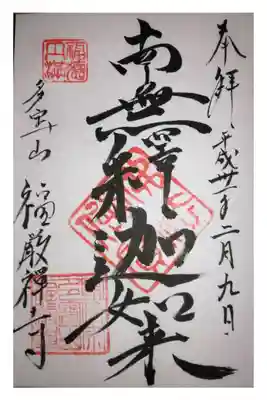 奉拜 平成卅一年二月九日
南無釋迦如来
多宝山 福嚴禅寺